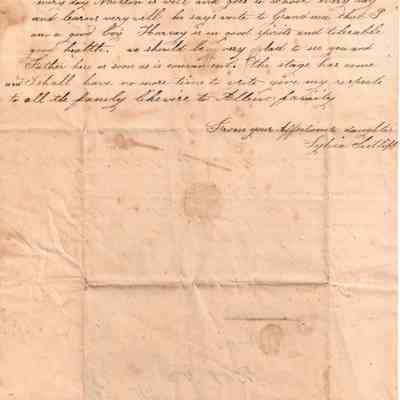 every day Martin is well and goes to school every day
and learns very well he says write to Grandma that I
am a good boy Harvey is in good spirits and tolerable
good health. we should be very glad to see you and
Father here as soon as is convenient. the stage has come
and I shall have no more time to write give my respects
to all the family likewise to Allens family
From your Affectionate daughter
Sylvia Sutliff